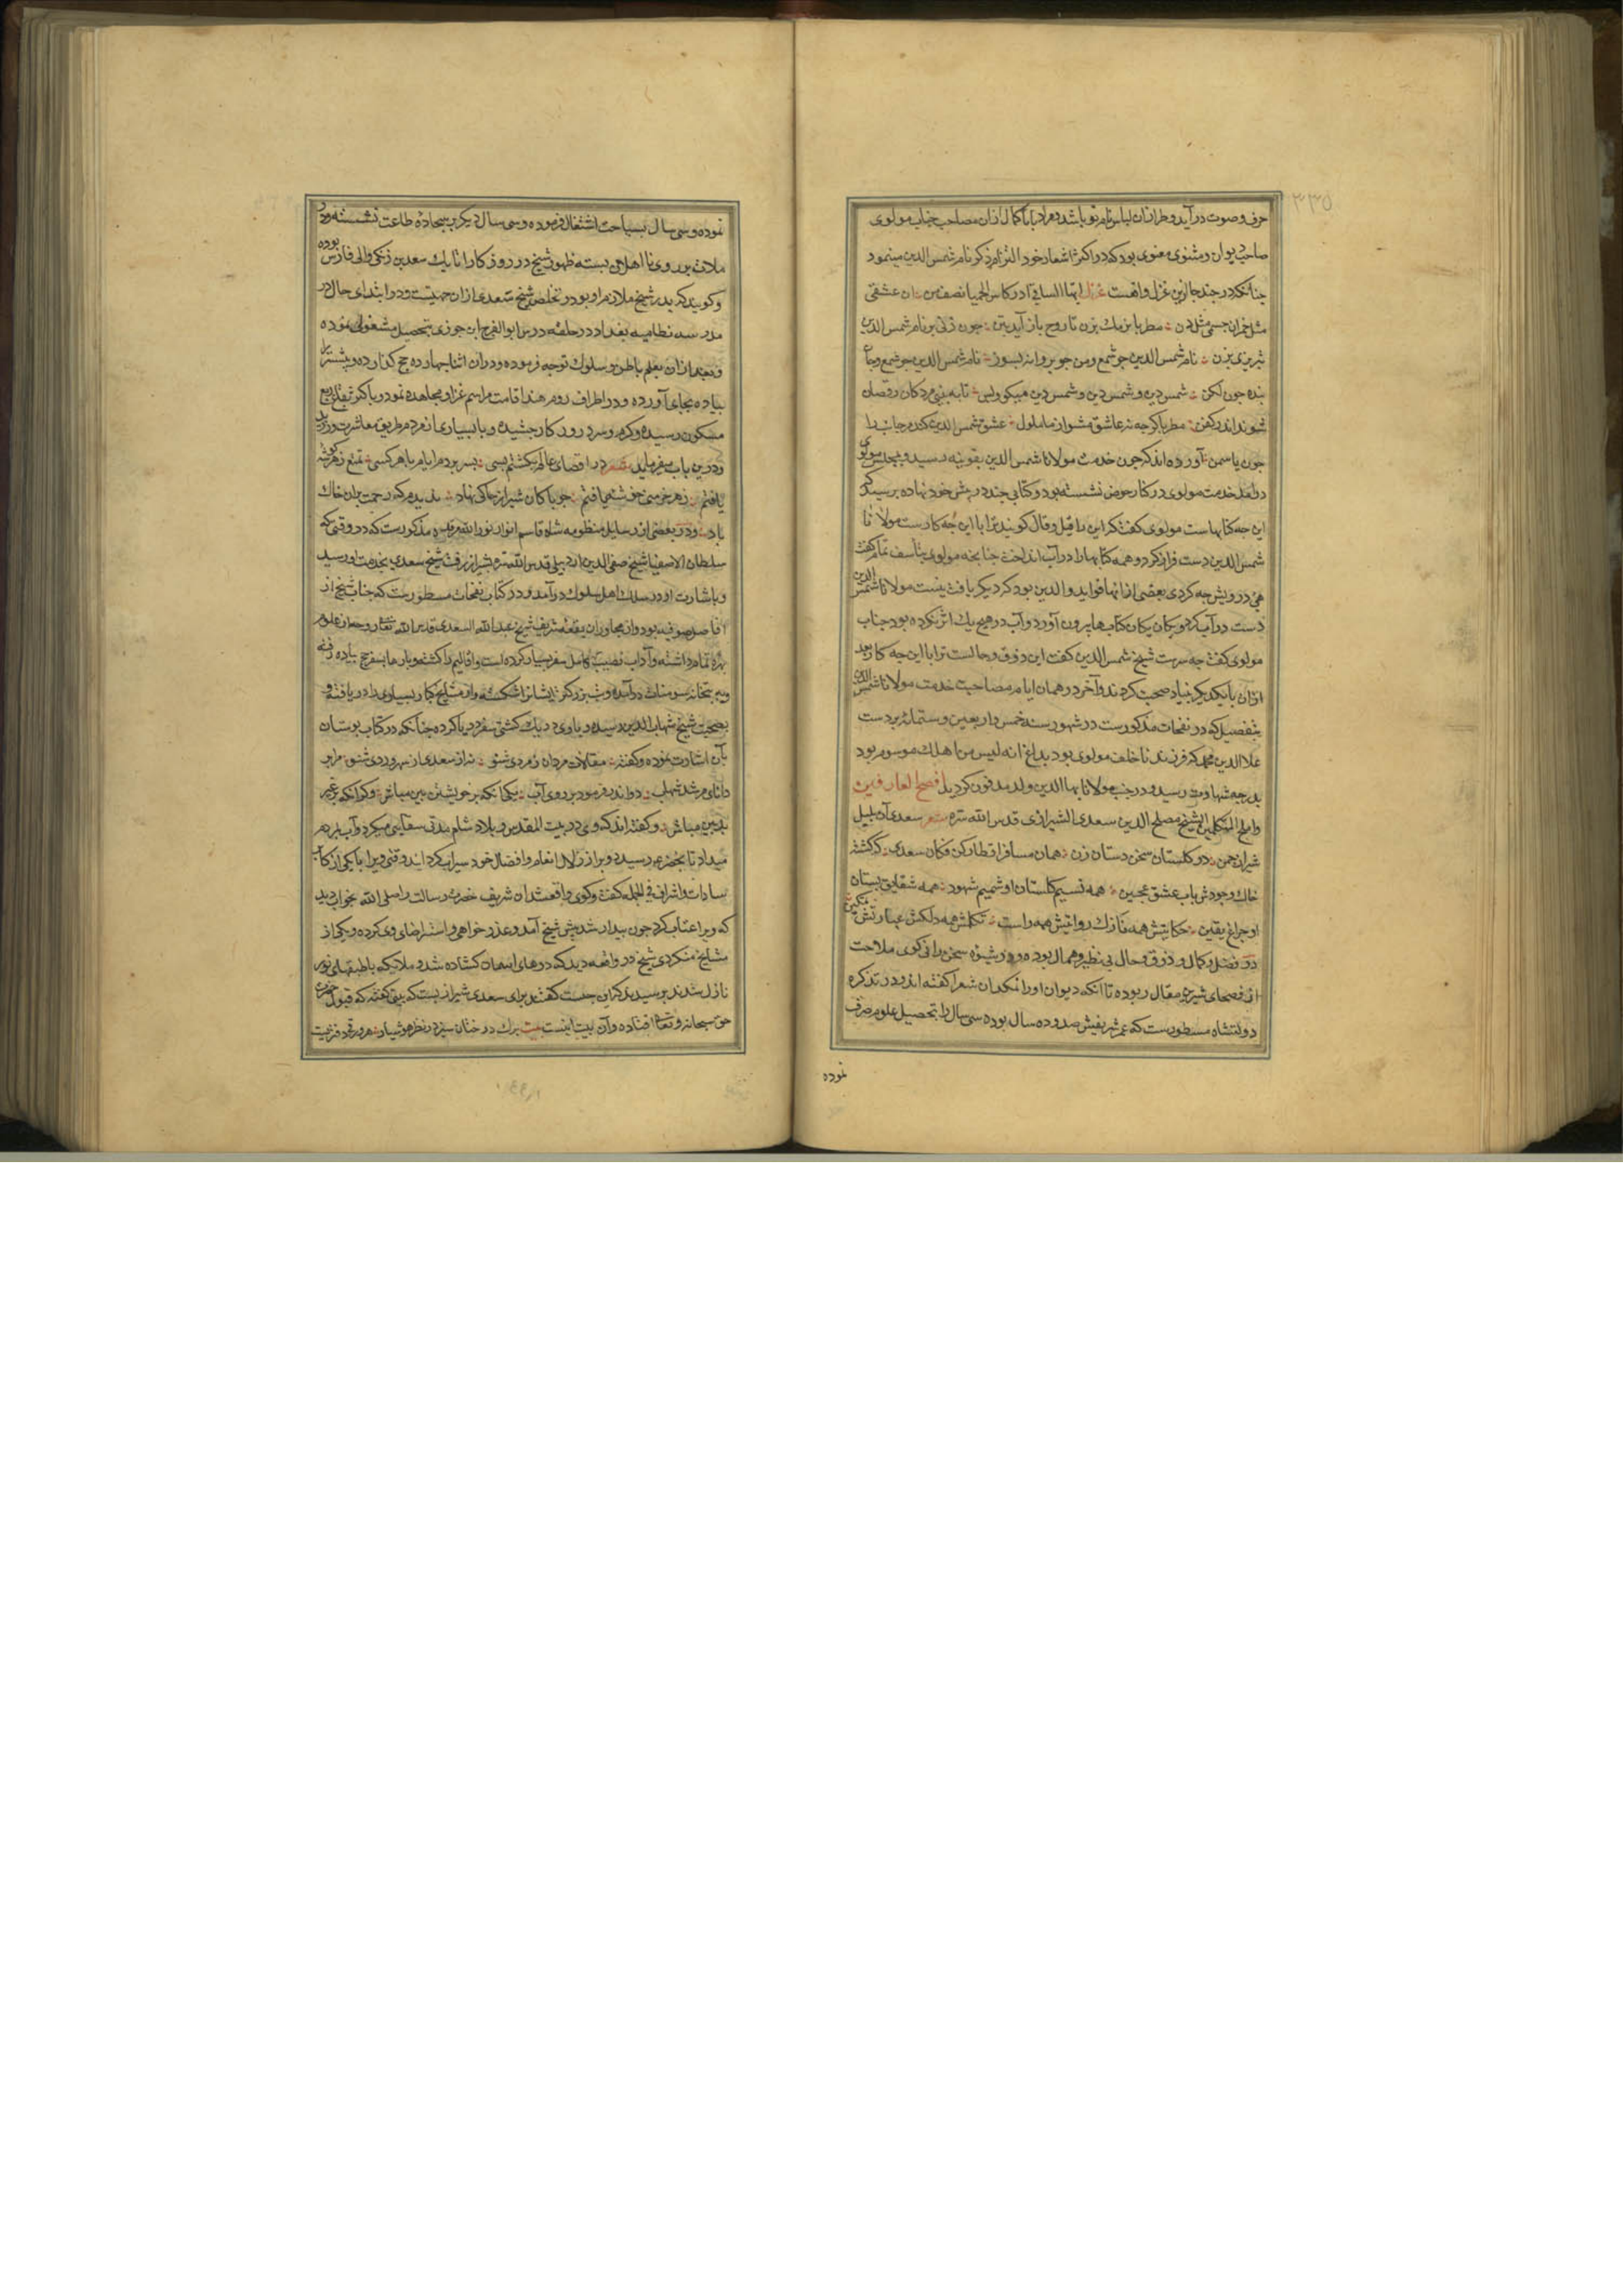 ٣٣٥
حرف وصوت درآید و طراز آن لباس نام تو باشد و مراد بابا کمال ازان مصاحب جناب مولوی
صاحب دیوان و مثنوی معنوی بود که در اکثر اشعار خود التزام ذکر نام شمس الدین مینمود
چنانکه در چند جا ازین غزل واقعست غزل ایها الساقی ادر کاس الحمیا نصف من ان عشقی
مثل خمران جسمی مثل دن مطربا نرمک بزن تا روح باز آید بتن چون زنی بر نام شمس الدین
تبریزی بزن نام شمس الدین چو شمع و من چو پروانه بسوز نام شمس الدین چو شمع و جان
بنده چون لکن شمس دین و شمس دین و شمس دین میکو و بس تا به بینی مردکان رقصان
شوند اندر کفن مطربا کرچه نه عاشق مشو از ما ملول عشق شمس الدین کند مر جانت را
چون یاسمن آورده اند که چون خدمت مولانا شمس الدین بقونیه رسید و بمجلس مولوی
درآمد خدمت مولوی در کنار حوض نشسته بود و کتابی چند در پیش خود نهاده پرسید که
این چه کتابهاست مولوی کفت که این را قیل و قال کویند ترا با این چه کارست مولانا
شمس الدین دست فراز کرد و همه کتابها را در آب انداخت جنابخه مولوی بتأسف تمام کفت
هی درویش چه کردی بعضی ازانها فواید والدین بود که دیکر یافت نیست مولانا شمس الدین
دست در آب کرد و یکان یکان کتابها بیرون آورد و آب در هیچ یک اثر نکرده بود جناب
مولوی کفت چه سرست شیخ شمس الدین کفت این ذوق و حالست ترا با این چه کار بعد
ازان با یکدیکر بنیاد صحبت کردند و آخر در همان ایام مصاحبت خدمت مولانا شمس الدین
بتفصیلی که در نفحات مذکورست در شهور سنه خمس و اربعین و ستمائه بر دست
علاالدین محمد که فرزند ناخلف مولوی بود بداغ انه لیس من اهلک موسوم بود
بدرجه شهادت رسید و در جنب مولانا بهاالدین ولد مدفون کردید افصح العارفین
واملح المتکلمین الشیخ مصلح الدین سعدی الشیرازی قدس الله سره شعر سعدی آن بلبل
شیراز چمن در کلستان سخن دستان زن همان مسافر اقطار کن فکان سعدی که کشته
خاک وجودش بآب عشق عجین همه نسیم کلستان او شمیم شهود همه شقایق بستان
او چراغ یقین حکایتش همه نازک روایتش همه راست تکلمش همه دلکش عبارتش نمکین
در فضل و کمال و ذوق و حال بی نظیر و همال بوده و در شیوه سخن رانی کوی ملاحت
از فصحای شیرین مقال ربوده تا آنکه دیوان او را نمکدان شعرا کفته اند و در تذکره
دولتشاه مسطورست که عمر شریفش صد و ده سال بوده سی سال را بتحصیل علوم صرف
نموده
نموده و سی سال بسیاحت اشتغال فرموده و سی سال دیکر بر سجاده طاعت نشسته و در
ملاقات بر روی نا اهلان بسته ظهور شیخ در روزکار اتابک سعد بن زنکی والی فارس بوده
و کویند که پدر شیخ ملازم او بود و تخلص شیخ سعدی ازان جهتست و در ابتدای حال در
مدرسه نظامیه بغداد در حلقه درس ابوالفرج ابن جوزی بتحصیل مشغولی نموده
و بعد ازان بعلم باطن و سلوک توجه فرموده و دران اثنا چهارده حج کذارده و بیشتر را
پیاده بجای آورده و در اطراف روم و هند اقامت مراسم غزا و مجاهده نمود و باکثر بقاع ربع
مسکون رسیده و کرم و سرد روزکار چشیده و با بسیاری از مردم طریق معاشرت ورزید
و درین باب میفرماید شعر در اقصای عالم بکشتم بسی بسر بردم ایام با هر کسی تمتع ز هر کوشه
یافتم ز هر خرمنی خوشه یافتم چو پاکان شیراز خاکی نهاد ندیدم که رحمت بران خاک
باد و در بعضی از رسایل منظومه شاه قاسم انوار نور الله مرقده مذکورست که در وقتی که
سلطان الاصفیا شیخ صفی الدین اردبیلی قدس الله سره بشیراز رفت شیخ سعدی بخدمت او رسید
و باشارت او در سلک اهل سلوک درآمد و در کتاب نفحات مسطورست که جناب شیخ از
افاضل صوفیه بود و از مجاوران بقعه شریف شیخ عبدالله السعدی قدس الله تعالی روحه از علوم
بهره تمام داشته و از آداب نصیب کامل سفر بسیار کرده است و اقالیم را کشته و بارها بسفر حج پیاده رفته
و به بتخانه سومنات درآمده و بت بزرکتر ایشانرا شکسته و از مشایخ کبار بسیاری را دریافته و
بصحبت شیخ شهاب الدین رسیده و با وی در یک کشتی سفر دریا کرده چنانکه در کتاب بوستان
بآن اشارت نموده و کفته مقالات مردان ز مردی شنو نه از سعدی از سهروردی شنو مرا پیر
دانای مرشد شهاب دو اندرز فرمود بر روی آب یکی آنکه بر خویشتن بین مباش دکر آنکه بر غیر
بدبین مباش و کفته اند که وی در بیت المقدس و بلاد شام مدتی سقایی میکرد و آب بمردم
میداد تا بخضر رسید و ویرا از زلال انعام و افضال خود سیراب کردانید وقتی ویرا با یکی از اکابر
سادات و اشراف فی الجمله کفت و کوی واقع شد آن شریف حضرت رسالت را صلی الله بخواب دید
که ویرا عتاب کرد چون بیدار شد پیش شیخ آمد و عذر خواهی و استرضای وی کرده و یکی از
مشایخ منکر وی شیخ در واقعه دید که درهای آسمان کشاده شد و ملائکه با طبقهای نور
نازل شدند پرسید که این چیست کفتند برای سعدی شیرازیست که بیتی کفته که قبول حضرت
حق سبحانه و تعالی افتاده و آن بیت اینست بیت برک درختان سبز در نظر هوشیار هر ورقی دفتریست